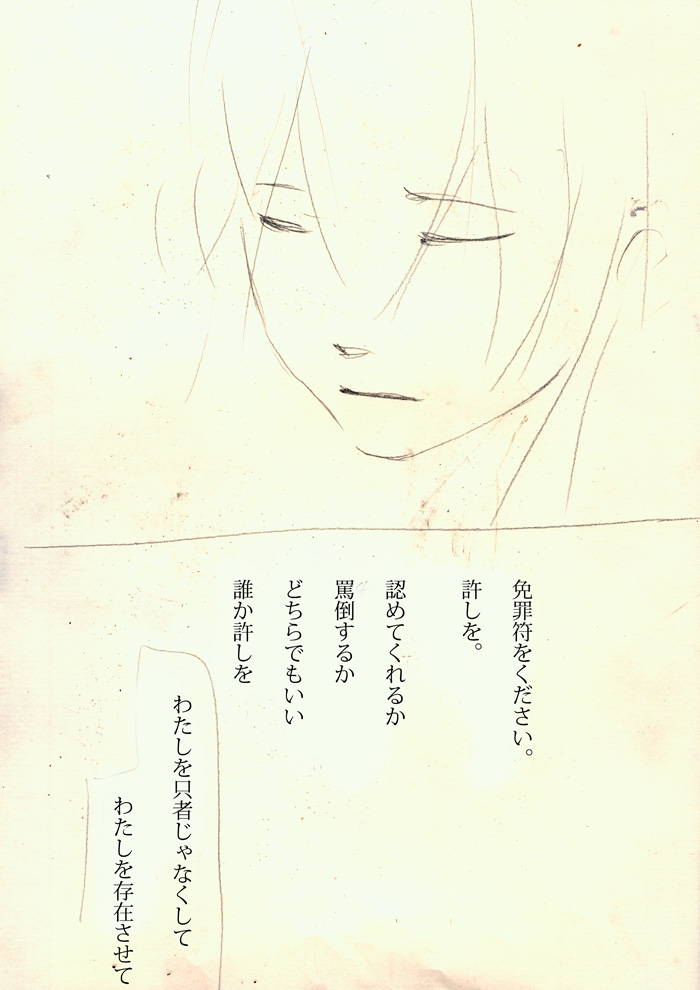 免罪符をください。
許しを。
認めてくれるか
罵倒するか
どちらでもいい
誰か許しを
わたしを只者じゃなくして
わたしを存在させて